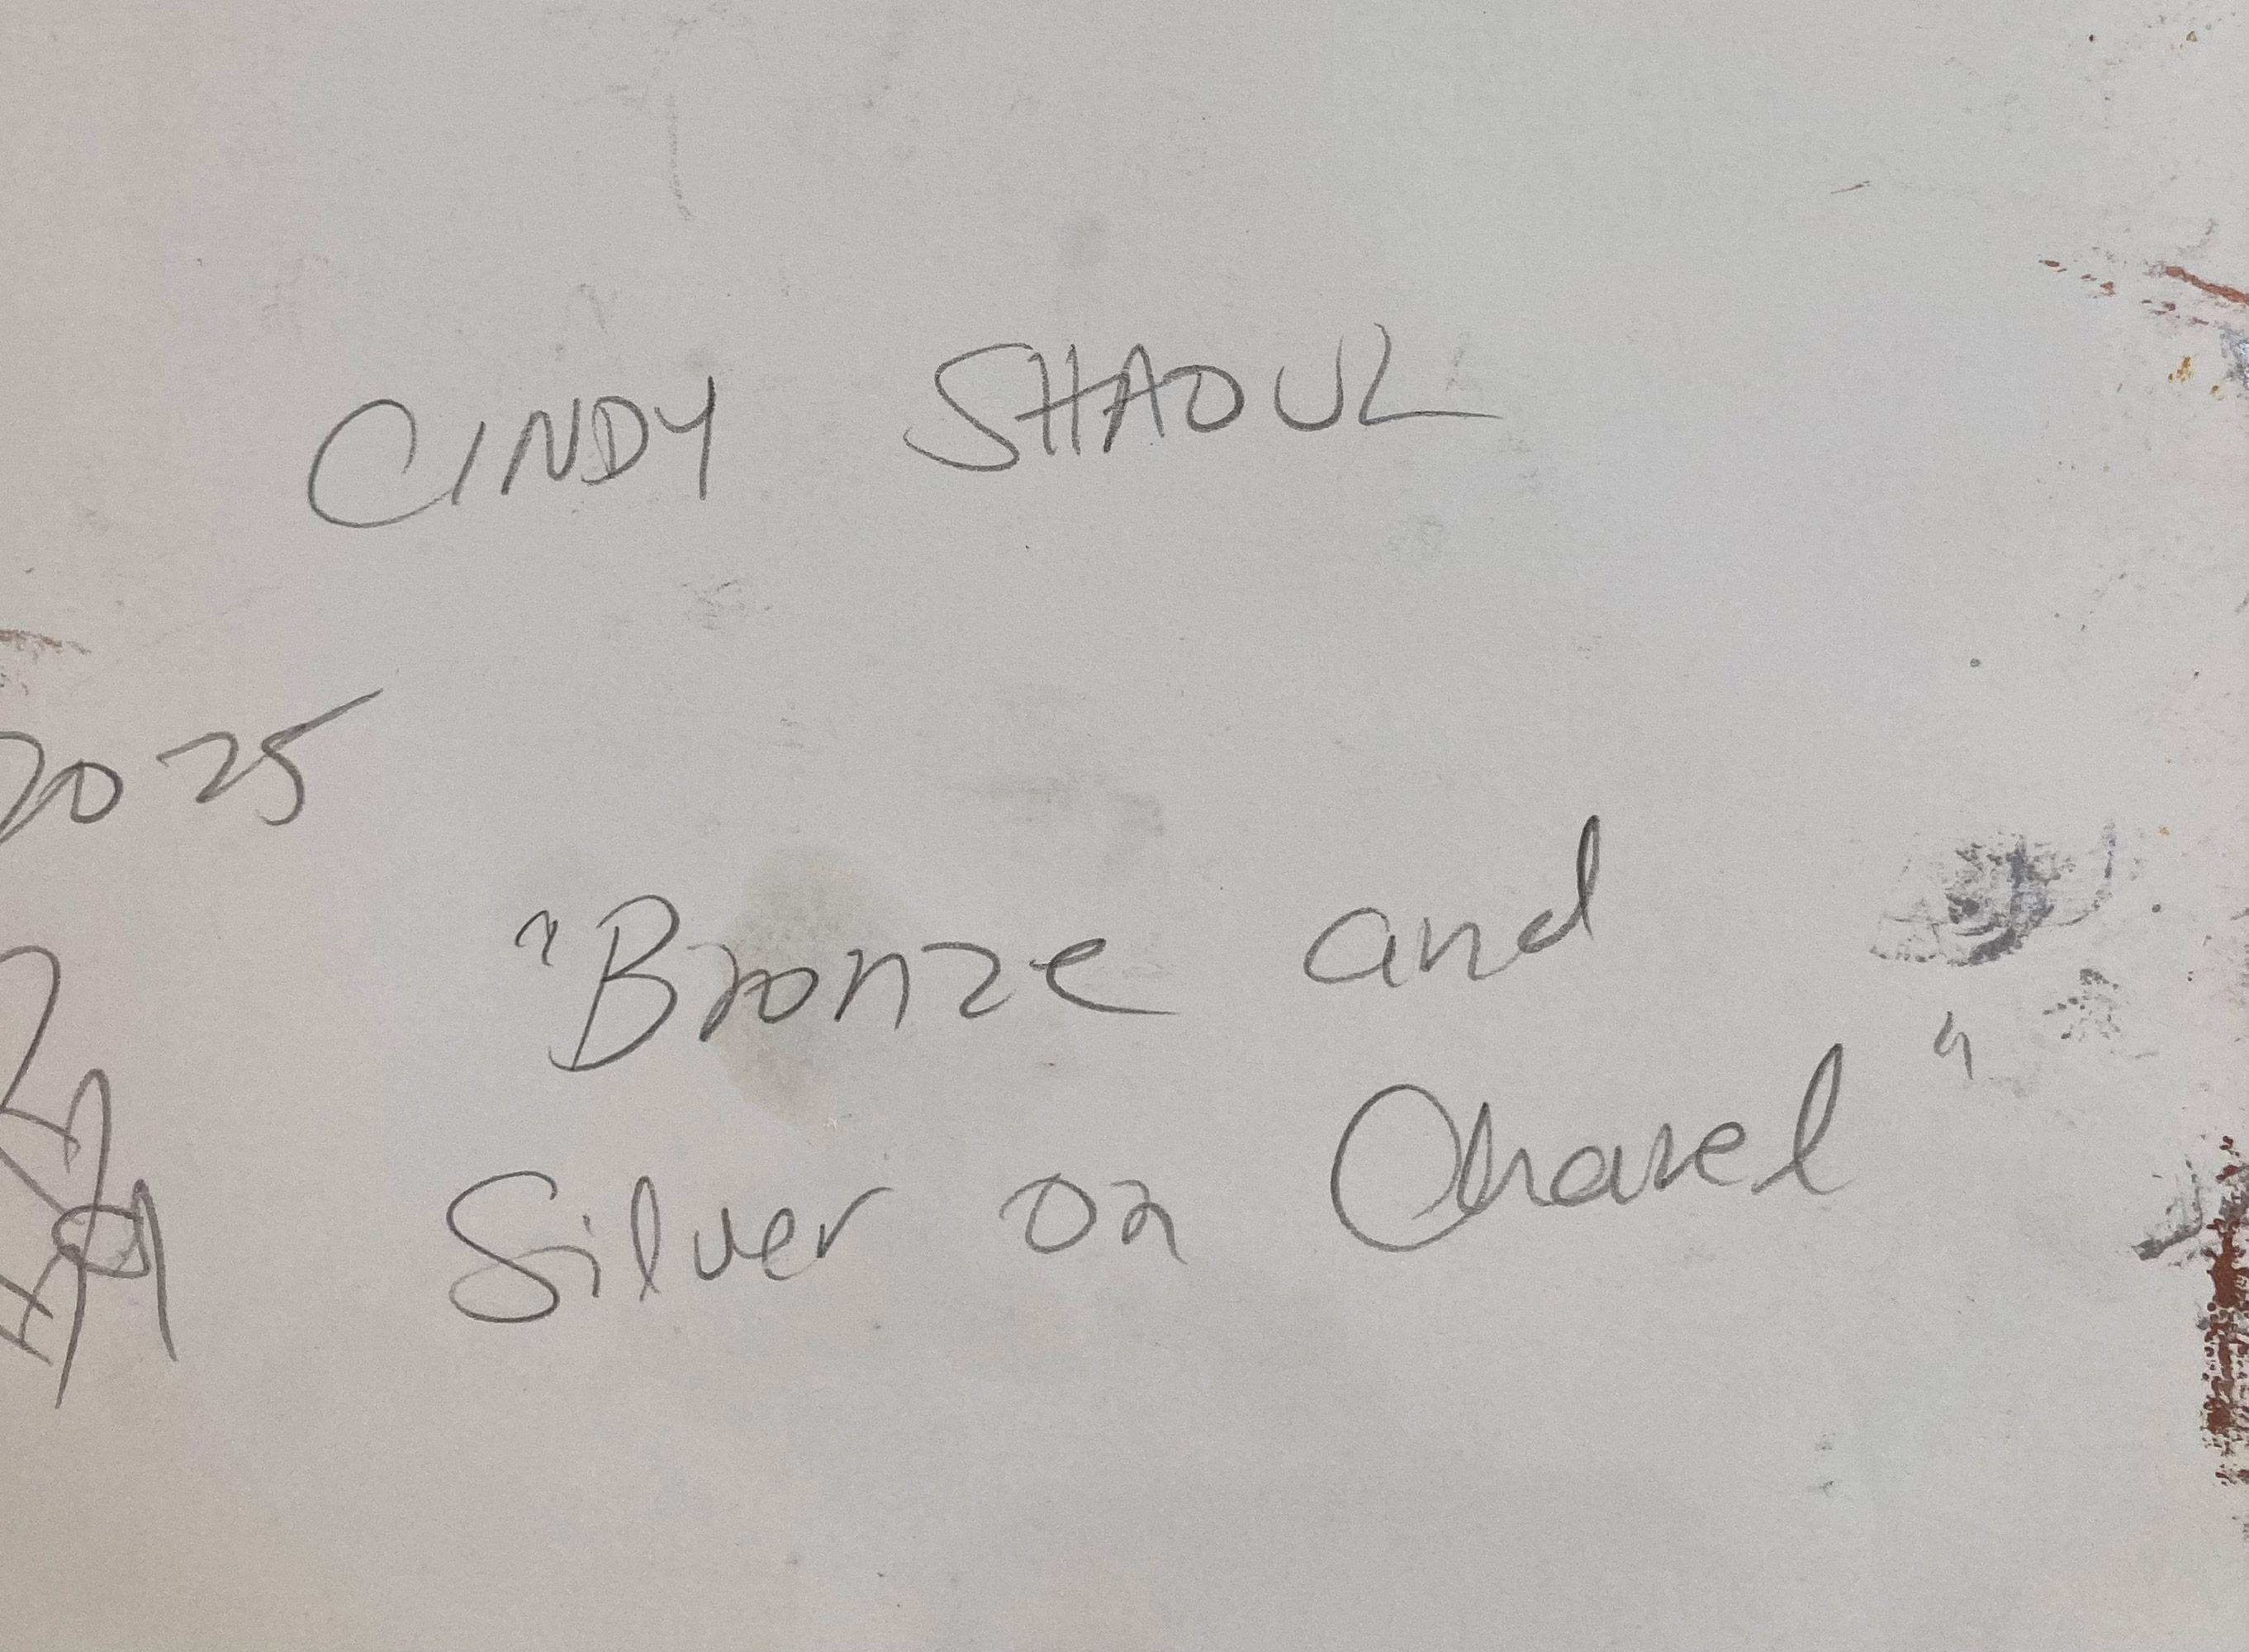 CINDY SHAOUL
2025
"Bronze and
Silver on Chanel"